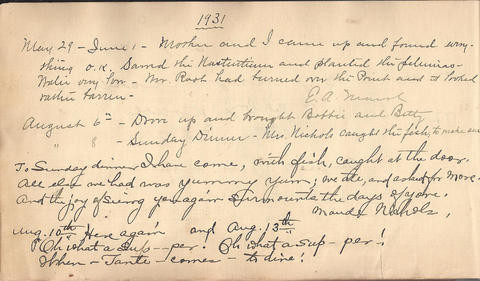 1931
May 29 - June 1 - Mother and I came up and found every-
thing o.k. Sowed the Nasturtium and planted the
Water very low - Mr. Root had burned over the Point and it looked
rather barren -
E. A.
August 6th - Drove up and brought Bobbie and Betty
" 8 - Sunday Dinner - Mrs. Nichols caught the fish, to make
To Sunday dinner I have come, with fish, caught at the door.
All else we had was yummy yum; we ate, and asked for more.
And the joy of seeing you again surmounts the days of yore.
Maude Nichols,
Aug. 10th Here again and Aug. 13th
"Oh what a sup--per! Oh what a sup-per!
When - Tante - comes - to dine!